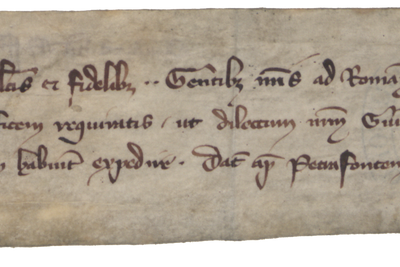 et fidelib3 .. Gentib3 nr̄is ad Roman
requiratis, ut dilectum nr̄m Gui
habuīt expedire. Dat̄ ap̄ Petrafonton